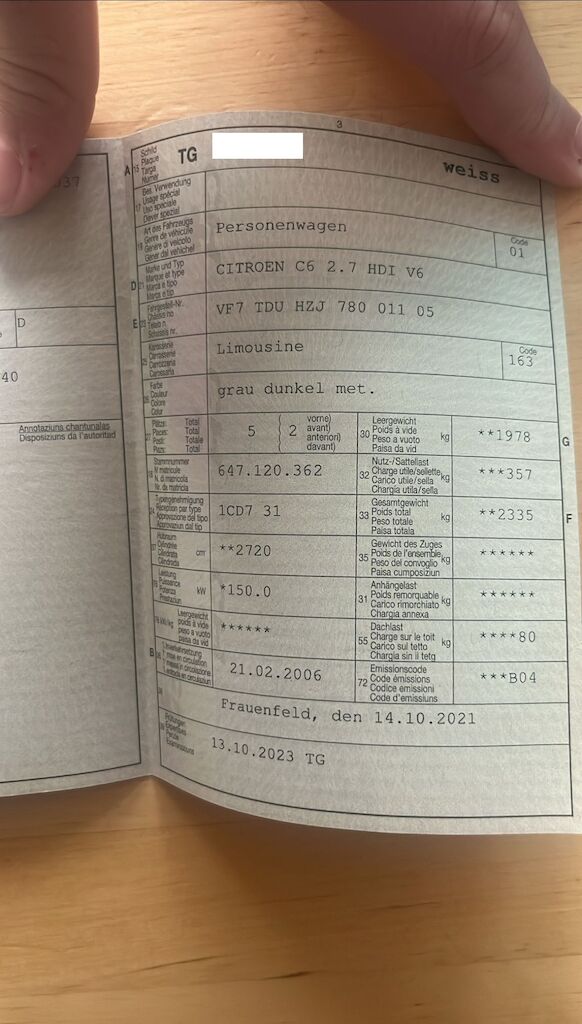 37
D
40
Annotaziuns chantunalas
Disposiziuns da l'autoritad
3
A
15
Schild
Plaque
Targa
Numer
TG
weiss
17
Bes. Verwendung
Usage spécial
Uso speciale
Diever spezial
Art des Fahrzeugs
Genre de véhicule
Genere di veicolo
Gener dal vehichel
Personenwagen
Code
01
D
21
Marke und Typ
Marque et type
Marca e tipo
Marca e tip
CITROEN C6 2.7 HDI V6
E
23
Fahrgestell-Nr.
Châssis no
Telaio n.
Schassis nr.
VF7 TDU HZJ 780 011 05
25
Karosserie
Carrosserie
Carrozzeria
Carossaria
Limousine
Code
163
26
Farbe
Couleur
Colore
Colur
grau dunkel met.
27
Plätze: Total
Places: Total
Posti: Totale
Plazs: Total
5
2
vorne)
avant)
anteriori)
davant)
30
Leergewicht
Poids à vide
Peso a vuoto
Paisa da vid
kg
**1978
G
18
Stammnummer
N matricule
N. di matricola
Nr. da matricla
647.120.362
32
Nutz-/Sattellast
Charge utile/sellette
Carico utile/sella
Chargia utila/sella
kg
***357
24
Typengenehmigung
Réception par type
Approvazione del tipo
Approvaziun dal tip
1CD7 31
33
Gesamtgewicht
Poids total
Peso totale
Paisa totala
kg
**2335
F
37
Hubraum
Cylindrée
Cilindrata
Cilindrada
cm³
**2720
35
Gewicht des Zuges
Poids de l'ensemble
Peso del convoglio
Paisa cumposiziun
kg
******
Leistung
Puissance
Potenza
Prestaziun
kW
*150.0
31
Anhängelast
Poids remorquable
Carico rimorchiato
Chargia annexa
kg
******
kW/kg
Leergewicht
poids à vide
peso a vuoto
paisa da vid
******
55
Dachlast
Charge sur le toit
Carico sul tetto
Chargia sin il tetg
kg
****80
B
1. Inverkehrsetzung
mise en circulation
messa in circolazione
entrada en circulaziun
21.02.2006
72
Emissionscode
Code émissions
Codice emissioni
Code d'emissiuns
***B04
Frauenfeld, den 14.10.2021
Prüfungen
Expertises
Perizie
Examinaziuns
13.10.2023 TG